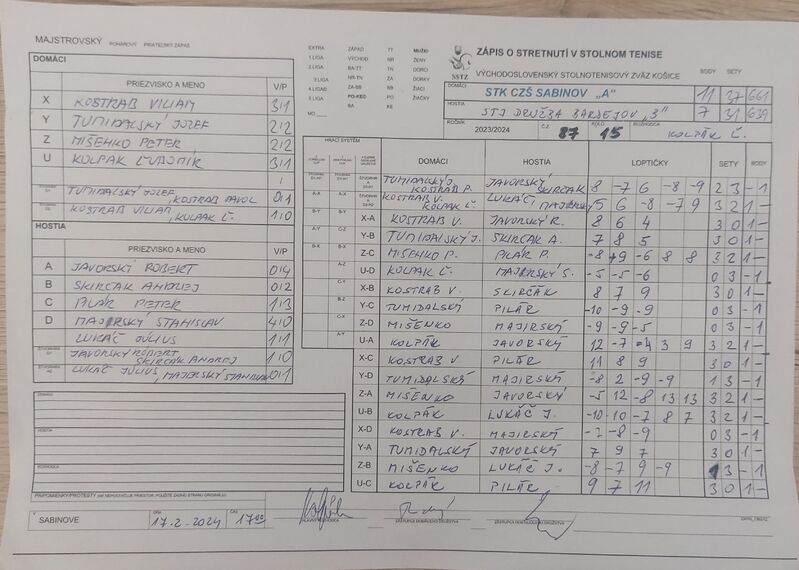 MAJSTROVSKÝ POHÁROVÝ PRIATEĽSKÝ ZÁPAS
DOMÁCI
PRIEZVISKO A MENO V/P
X KOSTRAB VILIAM 3/1
Y TUMIDALSKÝ JOZEF 2/2
Z MIŠENKO PETER 2/2
U KOLPAK ĽUBOMÍR 3/1
TUMIDALSKÝ JOZEF, KOSTRAB PAVOL 0/1
KOSTRAB VILIAM, KOLPAK Ľ. 1/0
HOSTIA
PRIEZVISKO A MENO V/P
A JAVORSKÝ ROBERT 0/4
B SKIRČAK ANDREJ 0/2
C PILÁR PETER 1/3
D MAJERSKÝ STANISLAV 4/0
LUKÁČ JÚLIUS 1/1
JAVORSKÝ RÓBERT SKIRČAK ANDREJ 1/0
LUKÁČ JÚLIUS, MAJERSKÝ STANISLAV 0/1
DOMÁCI
HOSTIA
ROZHODCA
PRIPOMIENKY/PROTESTY
V SABINOVE DŇA 17.2.2024 ČAS 17:00
HLAVNÝ ROZHODCA
ZÁSTUPCA DOMÁCEHO DRUŽSTVA
ZÁSTUPCA HOSŤUJÚCEHO DRUŽSTVA
EXTRA ZÁPAD TT MUŽI
1.LIGA VÝCHOD NR ŽENY
2.LIGA BA-TT TN DORCI
3.LIGA NR-TN ZA DORKY
4.LIGA ZA-BB BB ŽIACI
5.LIGA PO-KE PO ŽIAČKY
BA KE
SSTZ
ZÁPIS O STRETNUTÍ V STOLNOM TENISE
VÝCHODOSLOVENSKÝ STOLNOTENISOVÝ ZVÄZ KOŠICE
BODY SETY
DOMÁCI STK CZŠ SABINOV „A" 11 37 661
HOSTIA STJ DRUŽBA BARDEJOV „B" 7 31 639
ROČNÍK 2023/2024 Č.Z. 87 KOLO 15 ROZHODCA KOLPÁK Ľ.
HRACÍ SYSTÉM
DOMÁCI HOSTIA LOPTIČKY SETY BODY
TUMIDALSKÝ J. KOSTRAB P. JAVORSKÝ SKIRČAK 8 -7 6 -8 -9 2 3 - 1
KOSTRAB V. KOLPAK Ľ. LUKÁČ, MAJERSKÝ -5 6 -8 -7 9 3 2 1 -
X-A KOSTRAB V. JAVORSKÝ R. 8 6 4 3 0 1 -
Y-B TUMIDALSKÝ J. SKIRČAK A. 7 8 5 3 0 1 -
Z-C MIŠENKO P. PILÁR P. -8 +9 -6 8 8 3 2 1 -
U-D KOLPAK Ľ. MAJERSKÝ S. -5 -5 -6 0 3 - 1
X-B KOSTRAB V. SKIRČÁK 8 7 9 3 0 1 -
Y-C TUMIDALSKÝ PILÁR -10 -9 -9 0 3 - 1
Z-D MIŠENKO MAJIRSKÝ -9 -9 -5 0 3 - 1
U-A KOLPÁK JAVORSKÝ 12 -7 -4 3 9 3 2 1 -
X-C KOSTRAB V. PILÁR 11 8 9 3 0 1 -
Y-D TUMIDALSKÝ MAJIRSKÝ -8 2 -9 -9 1 3 - 1
Z-A MIŠENKO JAVORSKÝ -5 12 -8 13 13 3 2 1 -
U-B KOLPÁK LUKÁČ J. -10 -10 -7 8 7 3 2 1 -
X-D KOSTRAB V. MAJIRSKÝ -7 -8 -9 0 3 - 1
Y-A TUMIDALSKÝ JAVORSKÝ 7 9 7 3 0 1 -
Z-B MIŠENKO LUKÁČ J. -8 -7 9 -9 1 3 - 1
U-C KOLPÁK PILÁR 9 7 11 3 0 1 -